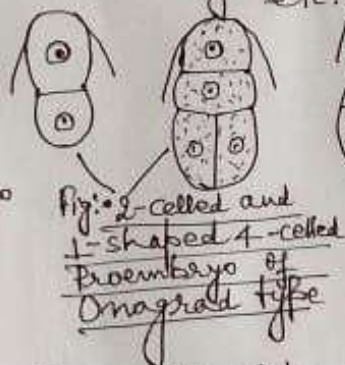 Fig:- 2-celled and
⊥-shaped 4-celled
Proembryo of
Onagrad type